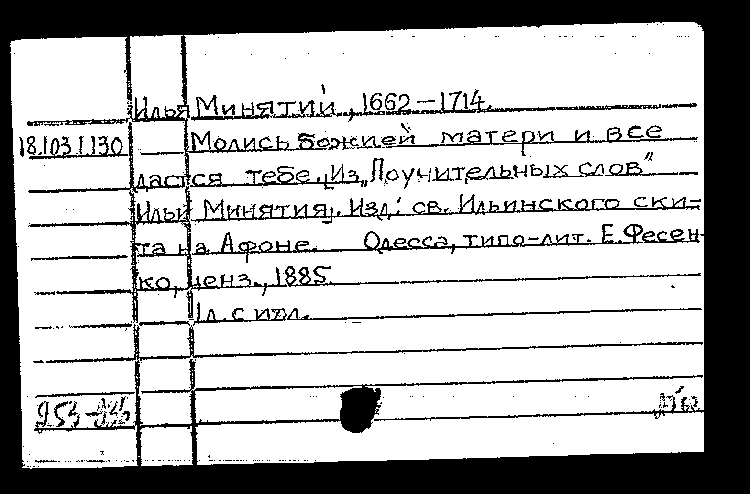 Илья Минятий, 1662-1714.
18.103.1.130 Молись божией матери и все
дастся тебе. [Из „Поучительных слов"
Ильи Минятия]. Изд: св. Ильинского ски-
та на Афоне. Одесса, типо-лит. Е. Фесен-
ко, ценз., 1885.
1 л. с илл.